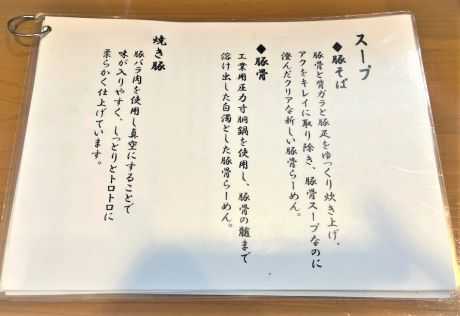 スープ
◆豚そば
豚骨と背ガラと豚足をゆっくり炊き上げ、
アクをキレイに取り除き、豚骨スープなのに
澄んだクリアな新しい豚骨らーめん。
◆豚骨
工業用圧力寸胴鍋を使用し、豚骨の髄まで
溶け出した白濁とした豚骨らーめん。
焼き豚
豚バラ肉を使用し真空にすることで
味が入りやすく、しっとりとトロトロに
柔らかく仕上げています。